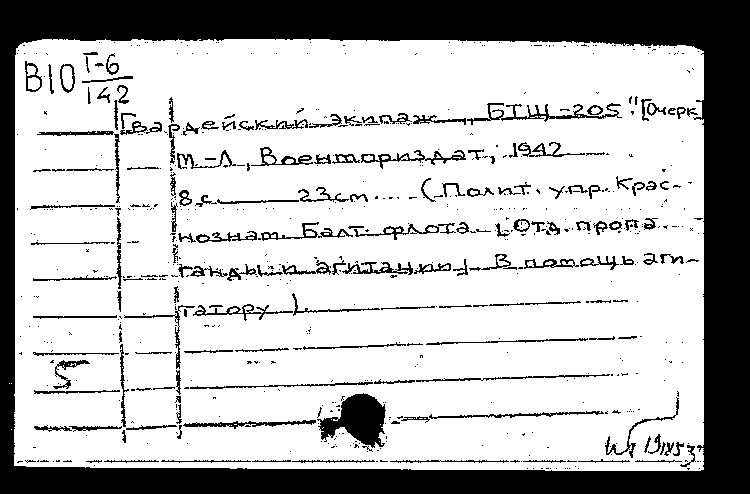 В10 Г-6
142
Гвардейский экипаж „БТЩ-205". [Очерк]
М.-Л., Военмориздат, 1942
8 с. 23 см. (Полит. упр. Крас-
нознам. Балт. флота. [Отд. пропа
ганды и агитации] В помощь аги-
татору).
5